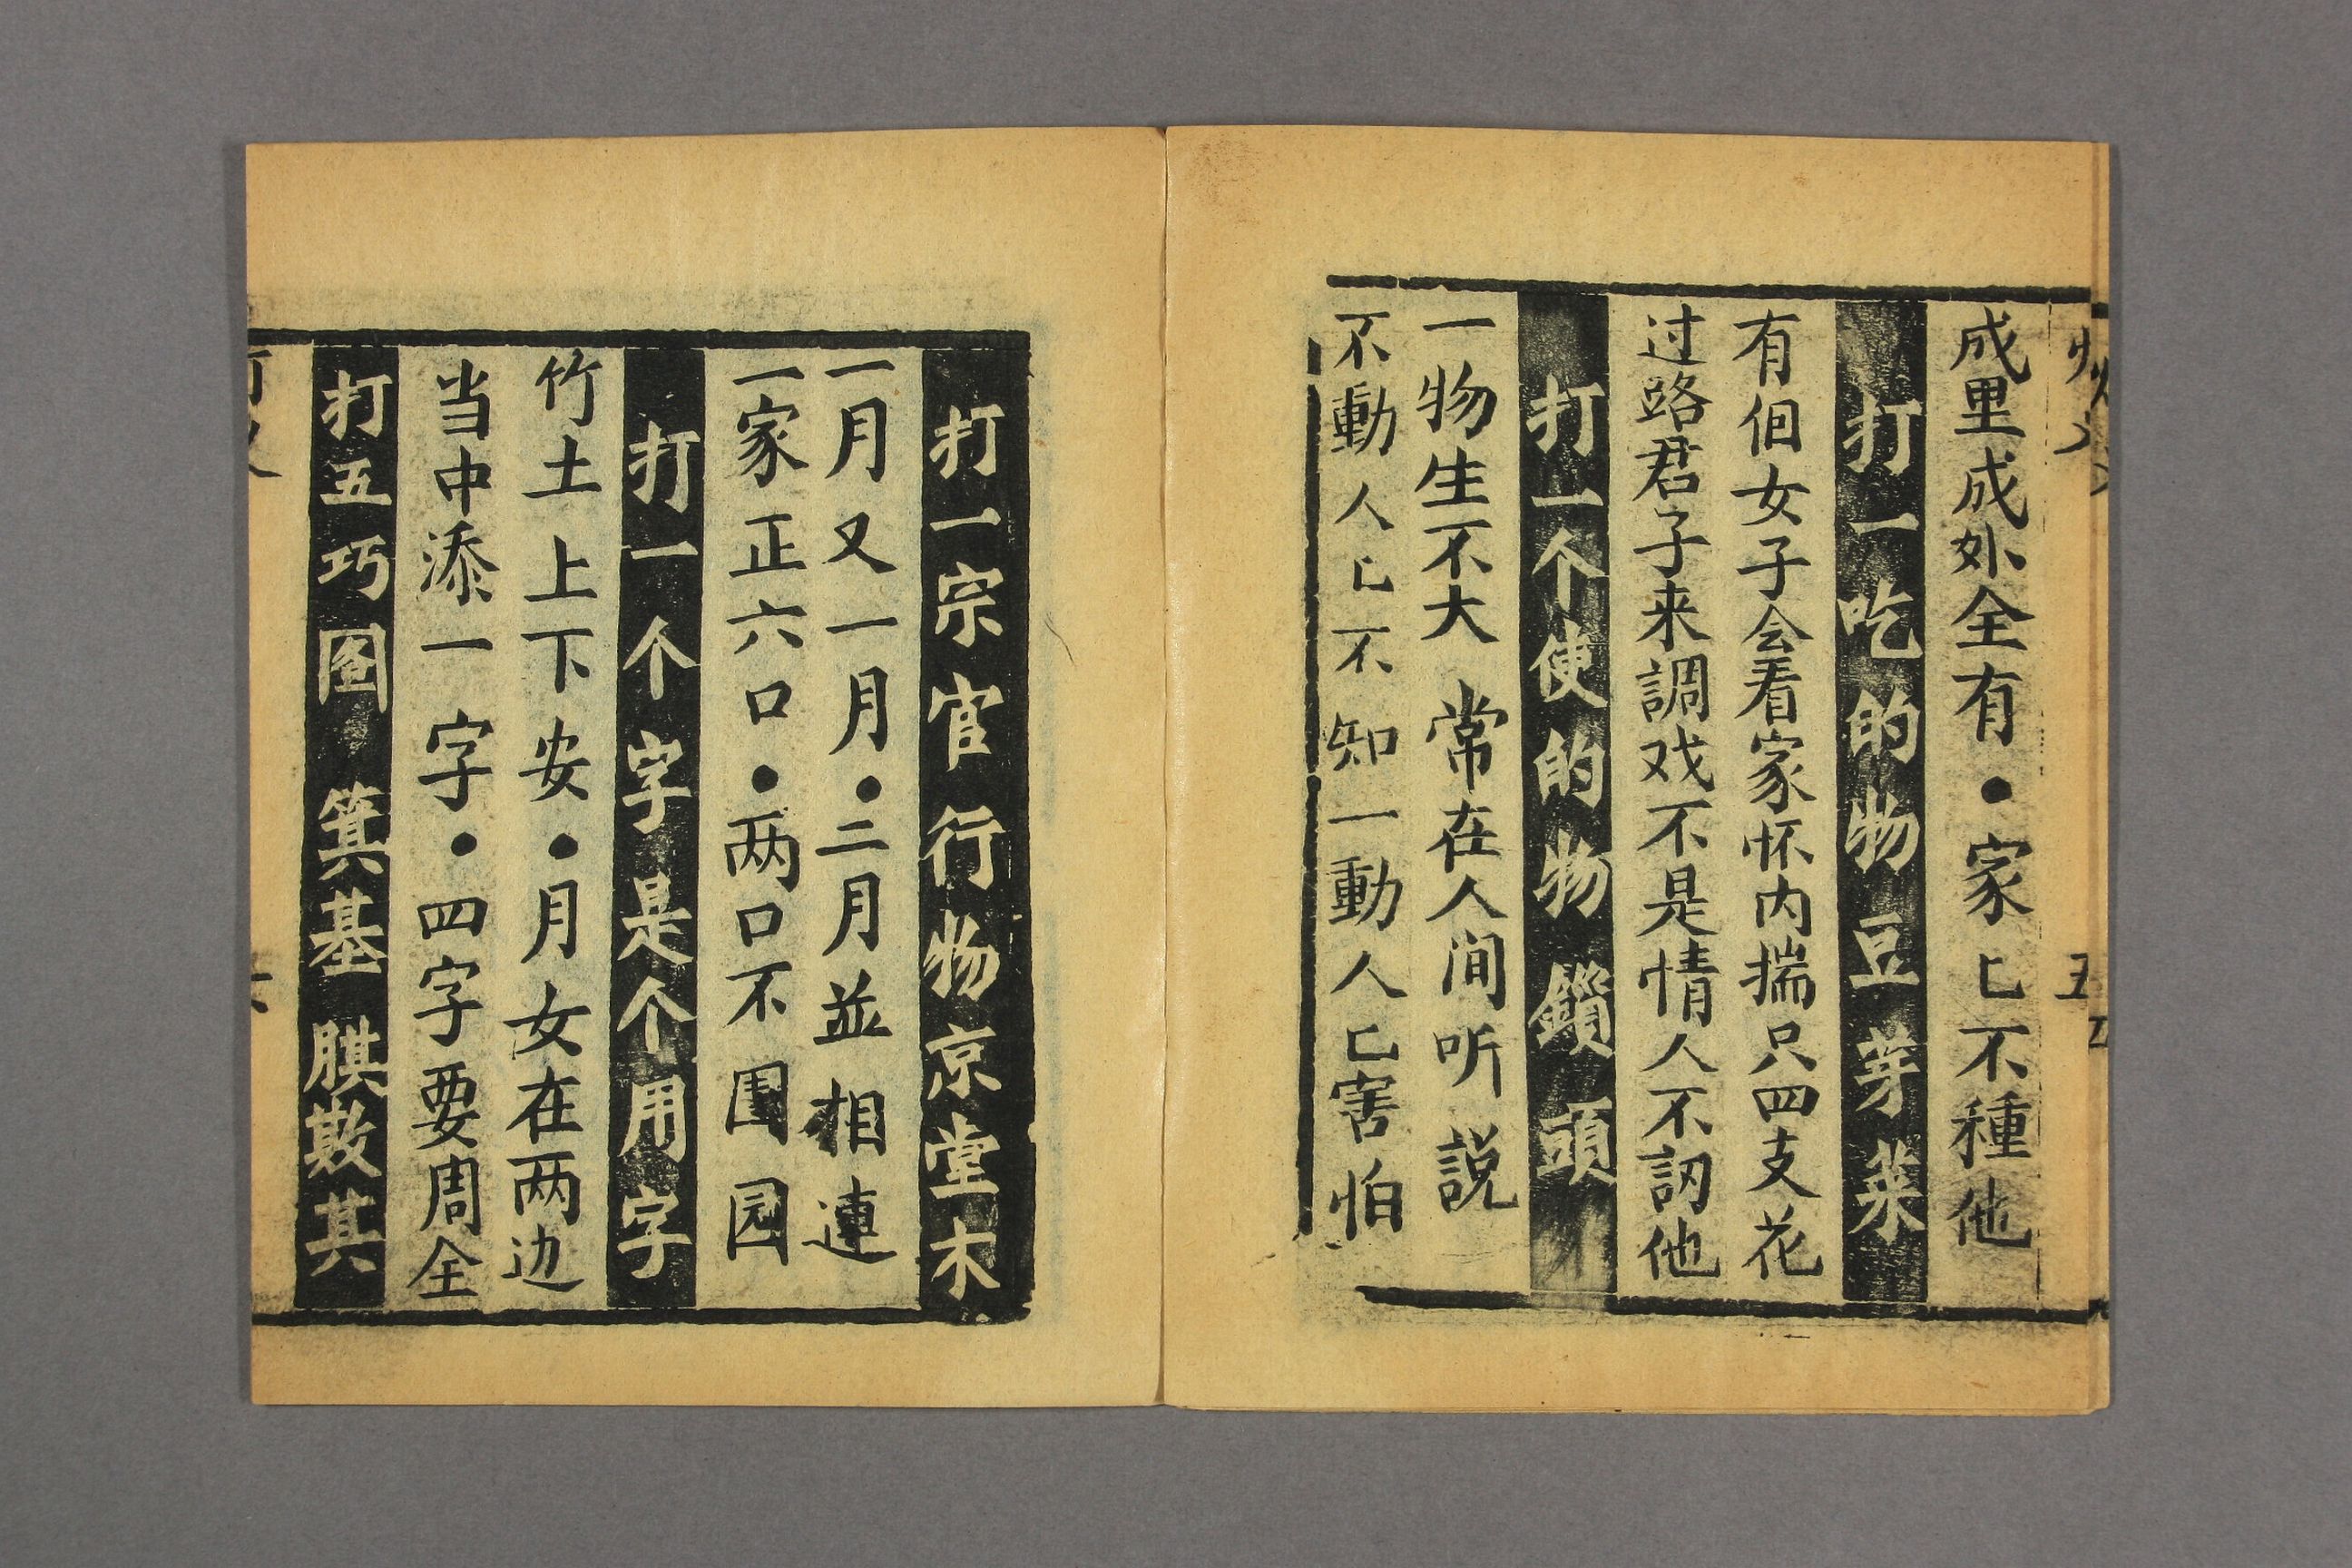 成里成外全有●家匕不種他
打一吃的物豆芽菜
有佪女子会看家怀内揣只四支花
过路君子来調戏不是情人不訒他
打一个使的物鎖頭
一物生不大常在人间听説
不動人匕不知一動人匕害怕
打一宗官行物京堂木
一月又一月●二月並相連
一家正六口●两口不囲园
打一个字是个用字
竹土上下安●月女在两边
当中添一字●四字要周全
打五巧图箕基朞敚其